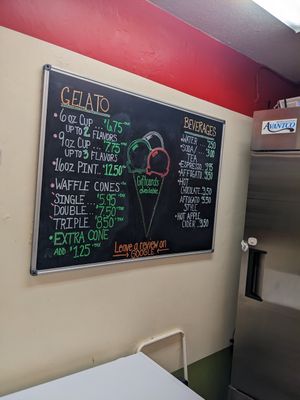 GELATO
6 oz Cup... $6.75 +tax
up to 2 Flavors
9 oz Cup... $7.75 +tax
up to 3 Flavors
16oz Pint... $12.50 +tax
Waffle Cones
Single... 5.95 +tax
Double... 7.50 +tax
Triple... 8.50 +tax
Extra Cone
Add $1.25 +tax
Giftcards
available
Leave a review on
Google
Beverages
Water
Soda/
Tea
Espresso
Affogato
Hot
Chocolate 3.50
Affogato
Style
Hot Apple
Cider 3.50
Avantco